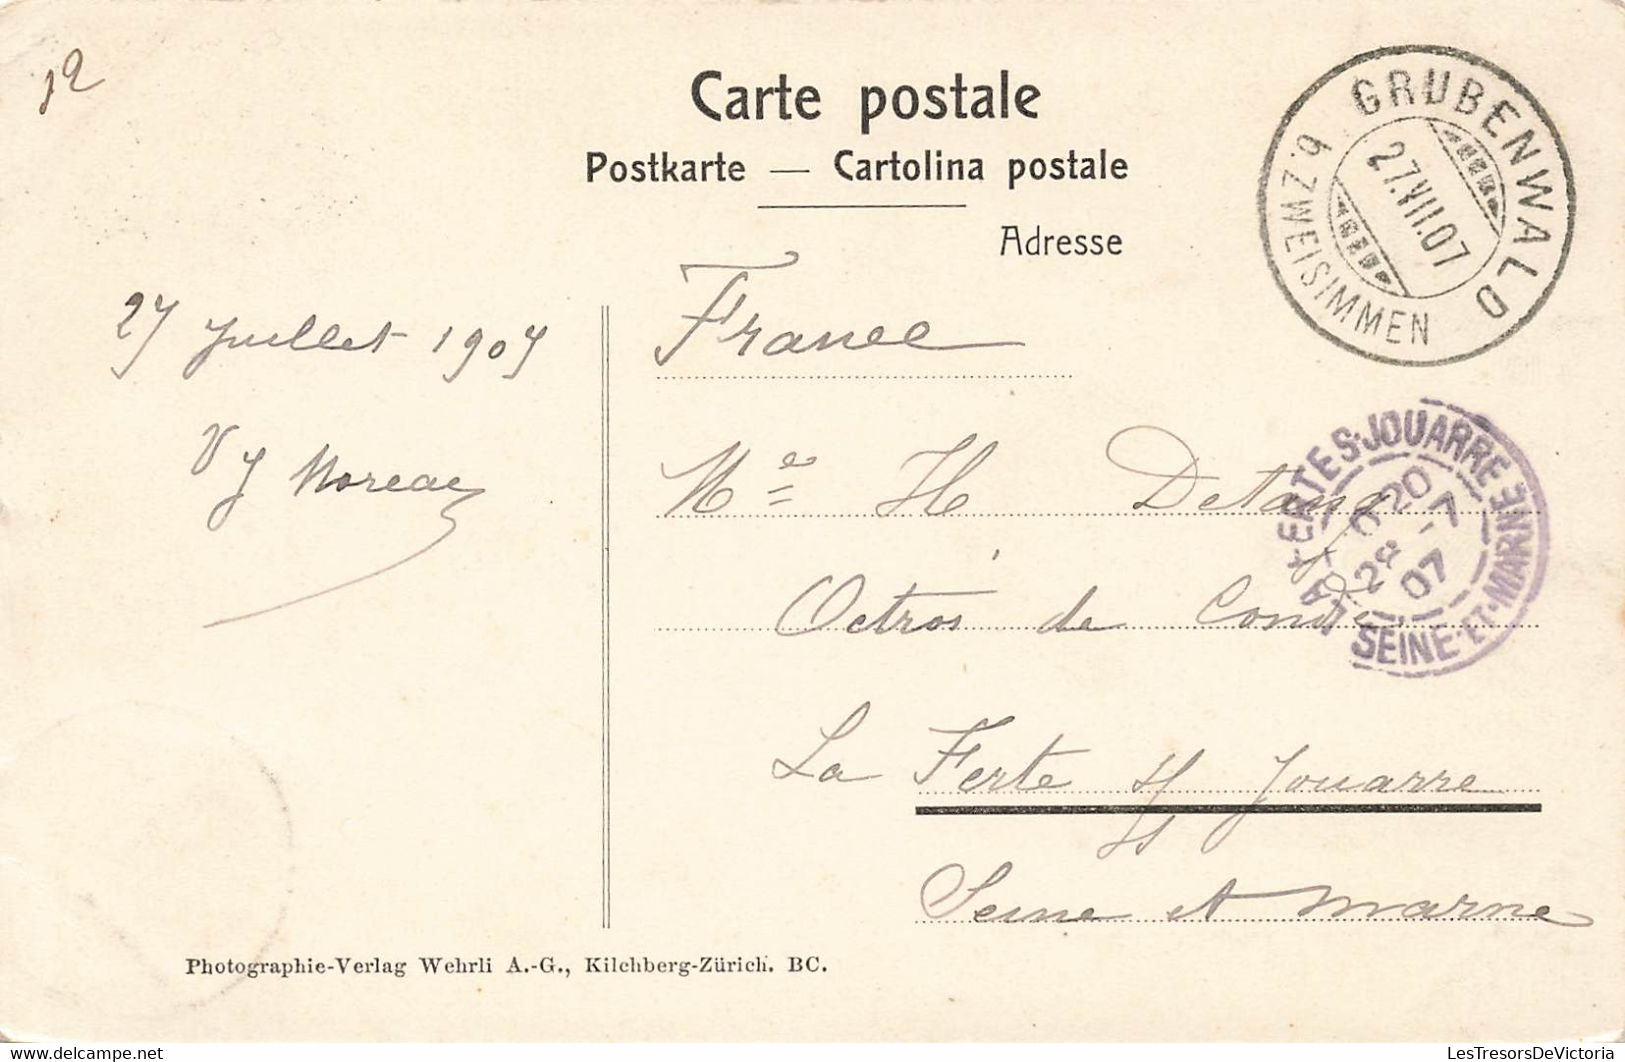 12
Carte postale
Postkarte — Cartolina postale
Adresse
GRUBENWALD
b. ZWEISIMMEN
27.VII.07
27 Juillet 1907
France
V J Moreau
Mᵉ H Detang
LA FERTE S. JOUARRE
SEINE-ET-MARNE
28 -7
07
Octroi de Condé
La Ferte s/s Jouarre
Seine et Marne
Photographie-Verlag Wehrli A.-G., Kilchberg-Zürich. BC.
LesTresorsDeVictoria